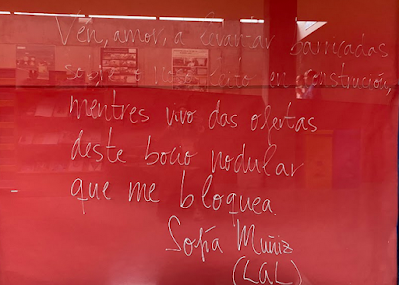 Ven, amor, a levantar barricadas
en construción,
mentres vivo das ofertas
deste bocio nodular
que me bloquea.
Sofía Muñiz
(LAL)